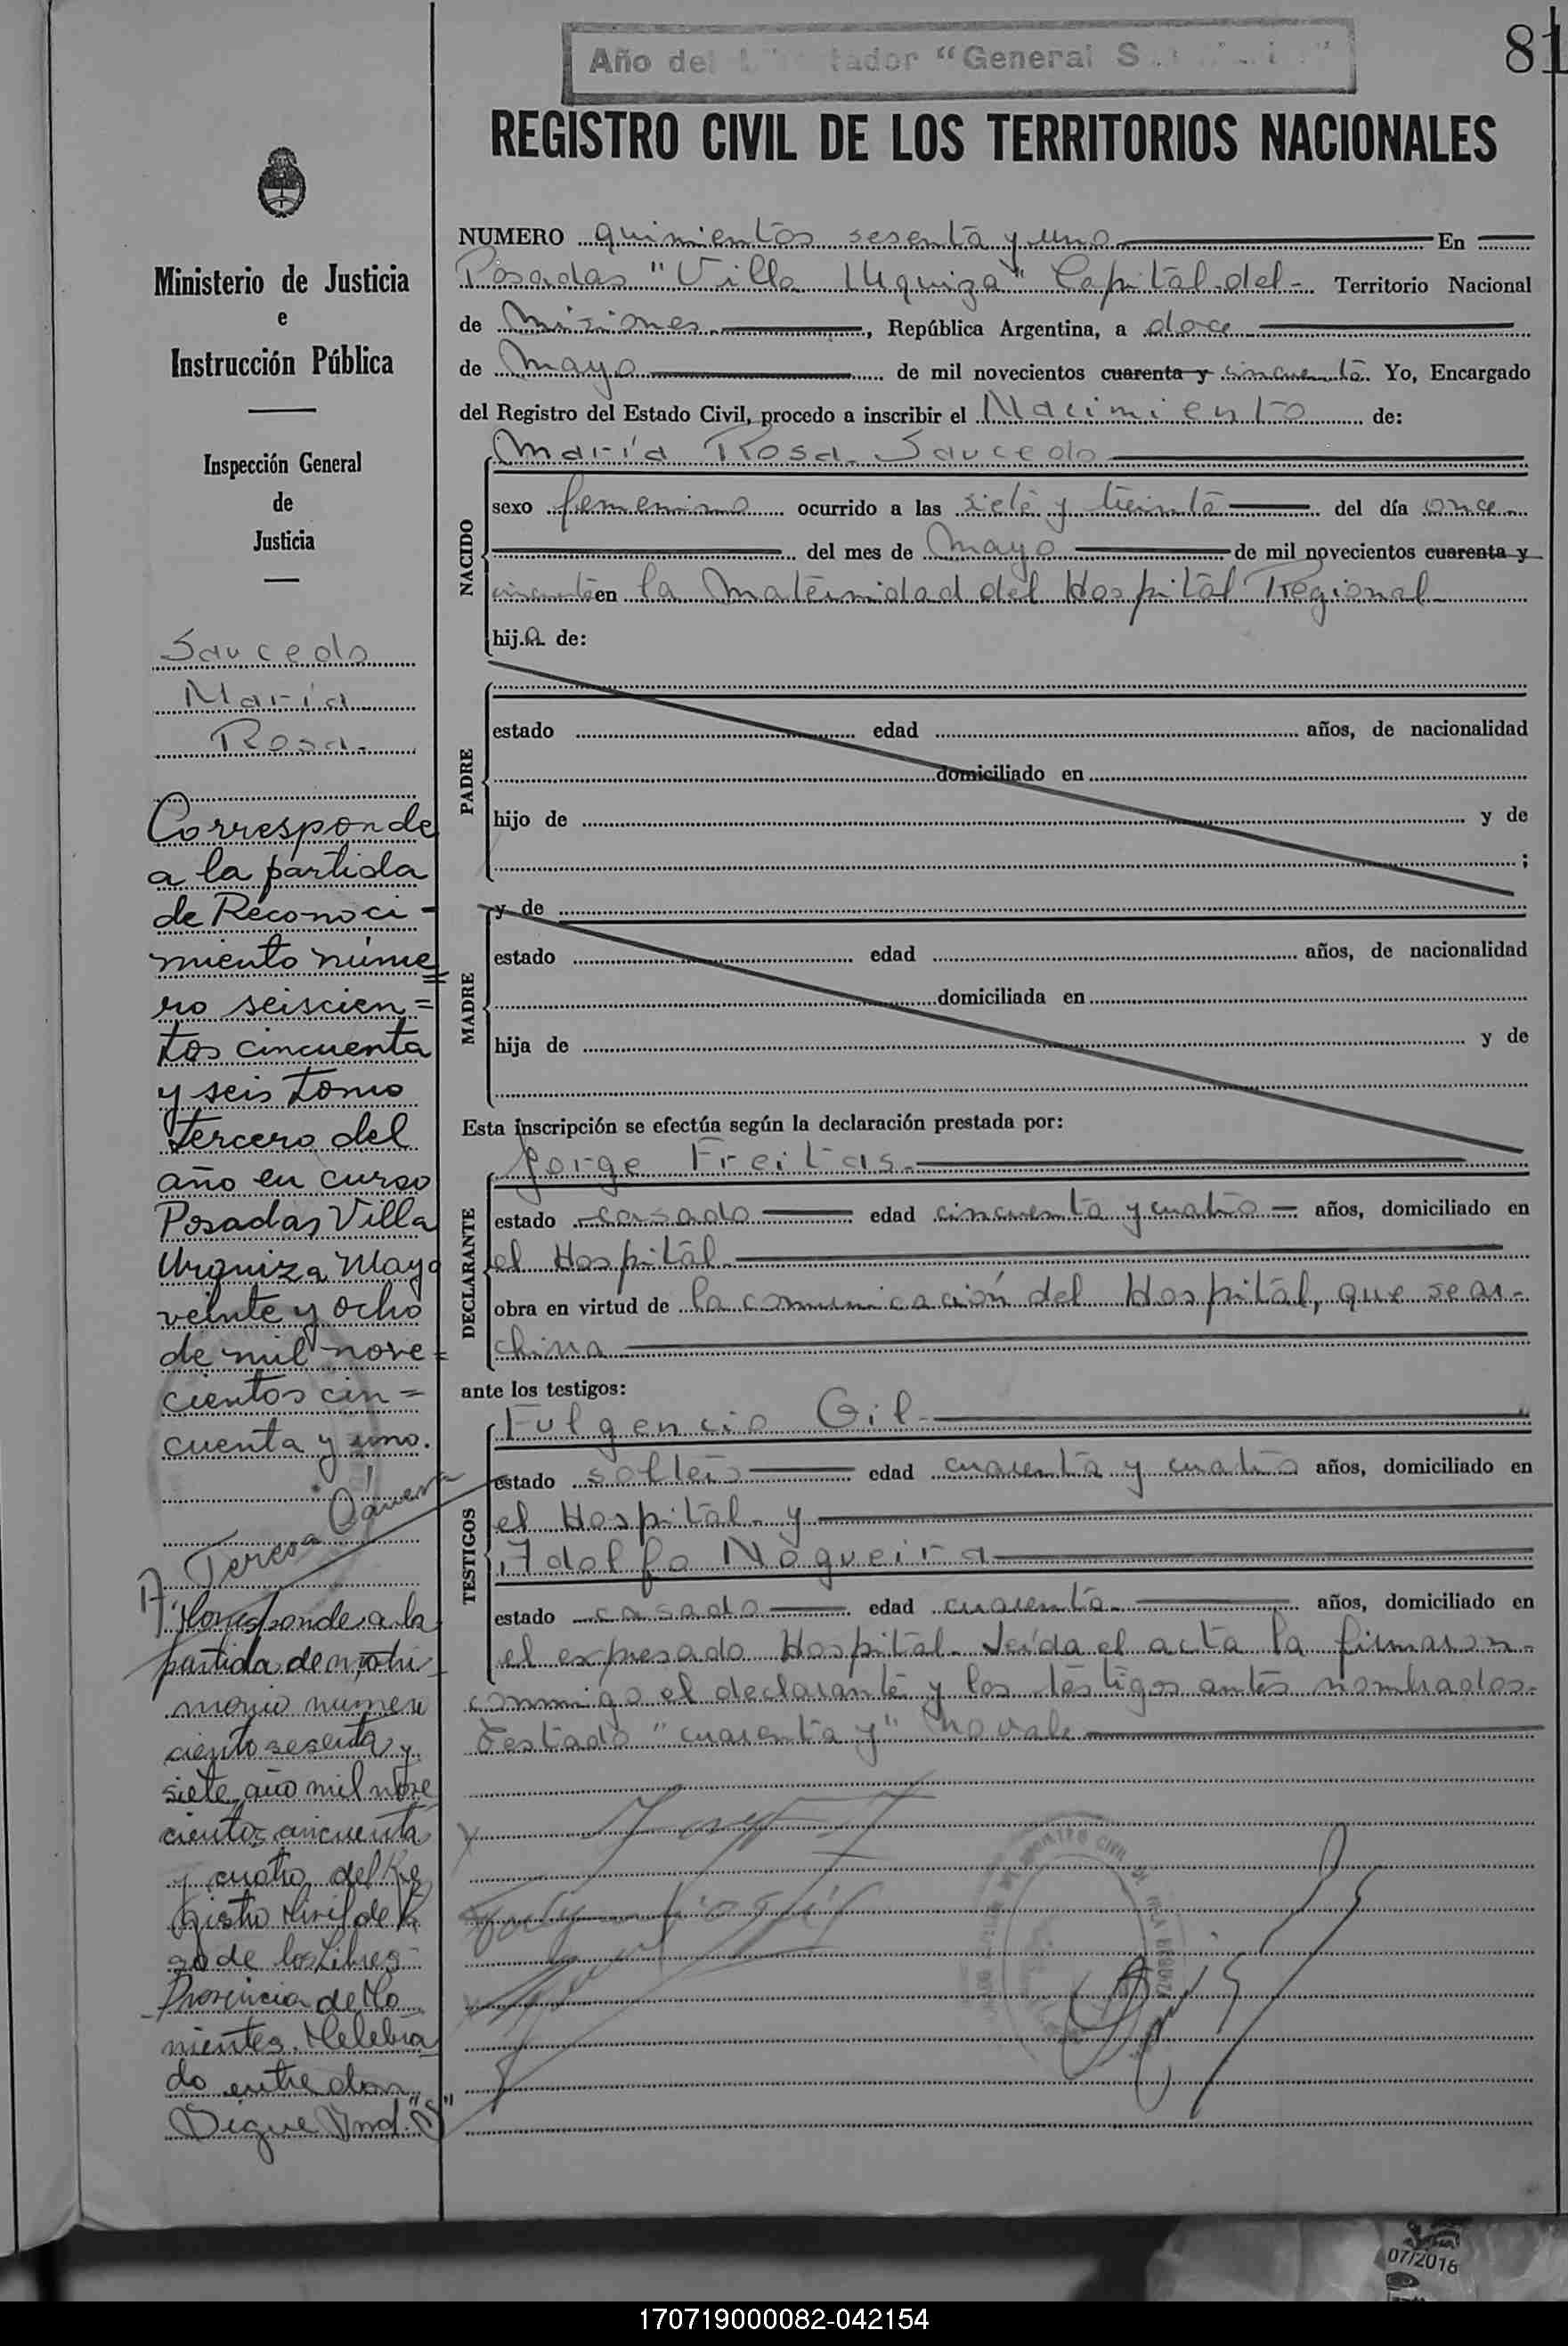 81
Año del Libertador "General S
REGISTRO CIVIL DE LOS TERRITORIOS NACIONALES
Ministerio de Justicia
e
Instrucción Pública
Inspección General
de
Justicia
Saucedo
María
Rosa.
Corresponde
a la partida
de Reconoci-
miento núme=
ro seiscien=
tos cincuenta
y seis tomo
tercero del
año en curso
Posadas Villa
Urquiza Mayo
veinte y ocho
de mil nove=
cientos cin=
cuenta y uno.
Teresa
Corresponde a la
partida de matri
monio numero
ciento sesenta y
siete año mil nove
cientos cincuenta
y cuatro del Re
gistro Civil de Pa
so de los Libres-
Provincia de Co
rrientes. Celebra
do entre don
Sigue Ind. "S"
NUMERO quinientos sesenta y uno En
Posadas "Villa Urquiza" Capital del- Territorio Nacional
de Misiones, República Argentina, a doce
de Mayo de mil novecientos cuarenta y cincuenta. Yo, Encargado
del Registro del Estado Civil, procedo a inscribir el Nacimiento de:
NACIDO
María Rosa Saucedo
sexo femenino ocurrido a las siete y treinta del día once
del mes de Mayo de mil novecientos cuarenta y
cincuenta en la Maternidad del Hospital Regional
hija de:
PADRE
estado edad años, de nacionalidad
domiciliado en
hijo de y de
;
MADRE
y de
estado edad años, de nacionalidad
domiciliada en
hija de y de
Esta inscripción se efectúa según la declaración prestada por:
DECLARANTE
Jorge Freitas.
estado casado edad cincuenta y cuatro años, domiciliado en
el Hospital
obra en virtud de la comunicación del Hospital, que se ar-
chiva
ante los testigos:
TESTIGOS
Fulgencio Gil
estado soltero edad cuarenta y cuatro años, domiciliado en
el Hospital y
Adolfo Nogueira
estado casado edad cuarenta años, domiciliado en
el expresado Hospital. Leída el acta la firmaron
conmigo el declarante y los testigos antes nombrados.
Testado "cuarenta y" No vale
07/2016
170719000082-042154